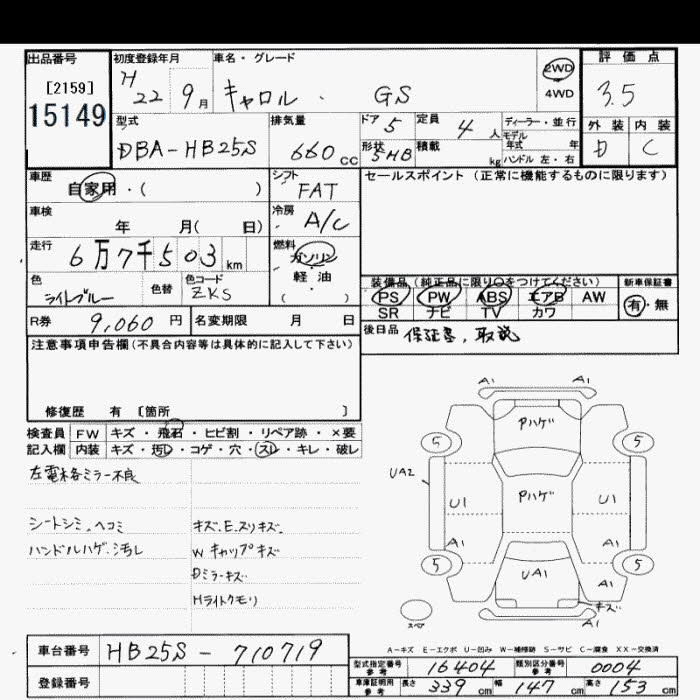 出品番号
[2159]
15149
初度登録年月
H 22 9月
車名・グレード
キャロル ・ GS
2WD
4WD
評価点
3.5
外装 内装
D C
型式
DBA-HB25S
排気量
660 cc
ドア 5
定員 4 人
形状 5HB
積載 kg
ディーラー・並行
モデル年式 年
ハンドル 左・右
車歴
自家用・( )
シフト
FAT
車検
年 月( 日)
冷房
A/C
走行
6万7千503km
燃料
ガソリン
軽・油
( )
色
ライトブルー
色替
色コード
ZKS
R券 9,060 円
名変期限 月 日
セールスポイント (正常に機能するものに限ります)
装備品(純正品に限り○をつけてください)
PS PW ABS エアB AW
SR ナビ TV カワ
新車保証書
有・無
後日品 保証書, 取説
注意事項申告欄(不具合内容等は具体的に記入して下さい)
修復歴 有 [箇所 ]
検査員 FW キズ・飛石・ヒビ割・リペア跡・×要
記入欄 内装 キズ・汚レ・コゲ・穴・スレ・キレ・破レ
左電格ミラー不良
シートシミ、ヘコミ
ハンドルハゲ、汚レ
キズ、E、スリキズ、
Wキャップキズ
Dミラーキズ
Hライトクモリ
A1 A1
Pハゲ
5 5
UA2
U1 Pハゲ U1
A1 A1
5 UA1 A1 5
スペア
キズ
A1 A1
A-キズ E-エクボ U-凹み W-補修跡 S-サビ C-腐食 XX-交換済
車台番号 HB25S-710719
登録番号
型式指定番号参考 16404
類別区分番号参考 0004
車庫証明用参考 長さ 339 cm 幅 147 cm 高さ 153 cm